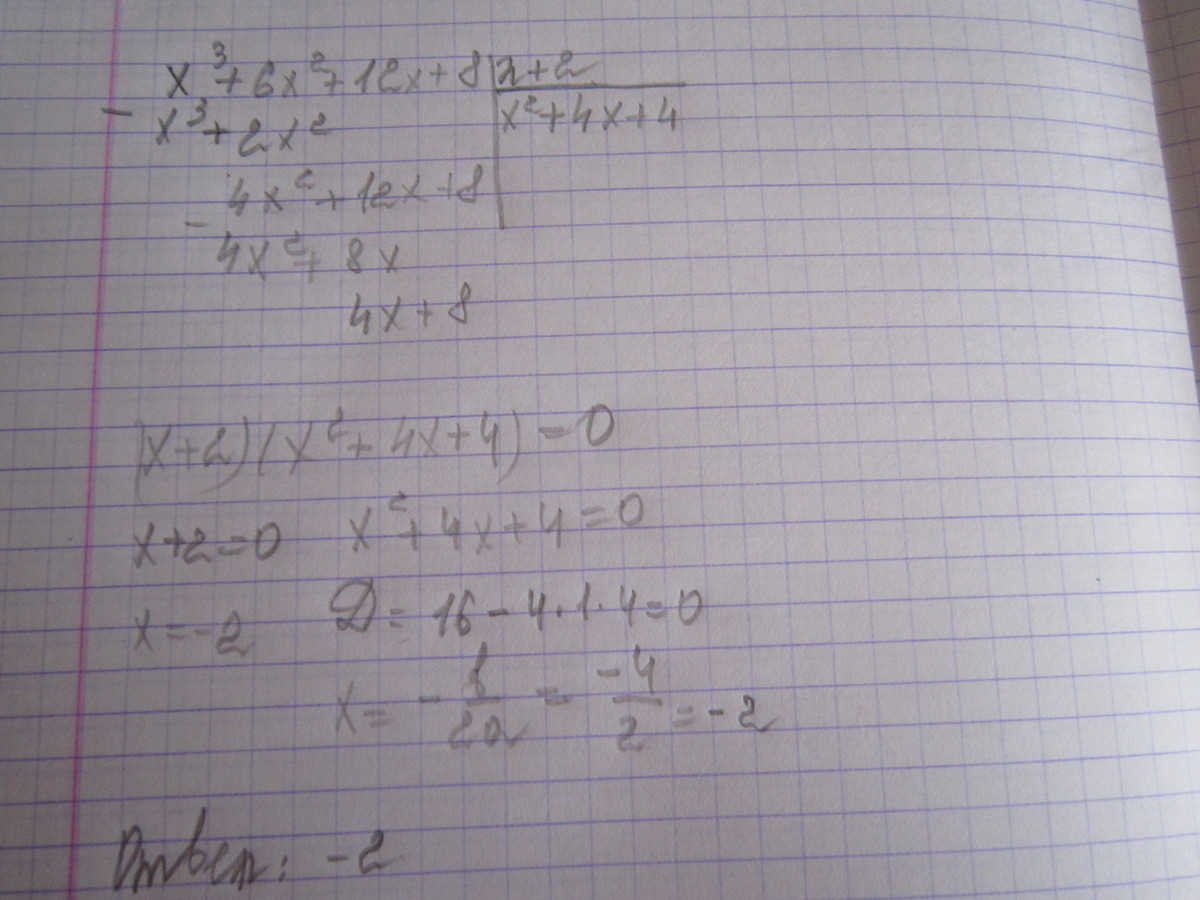 x³+6x²+12x+8 | x+2
- x³+2x² x²+4x+4
4x²+12x+8
- 4x²+8x
4x+8
(x+2)(x²+4x+4)=0
x+2=0 x²+4x+4=0
x=-2 D=16-4·1·4=0
x=-b/2a=-4/2=-2
Ответ: -2